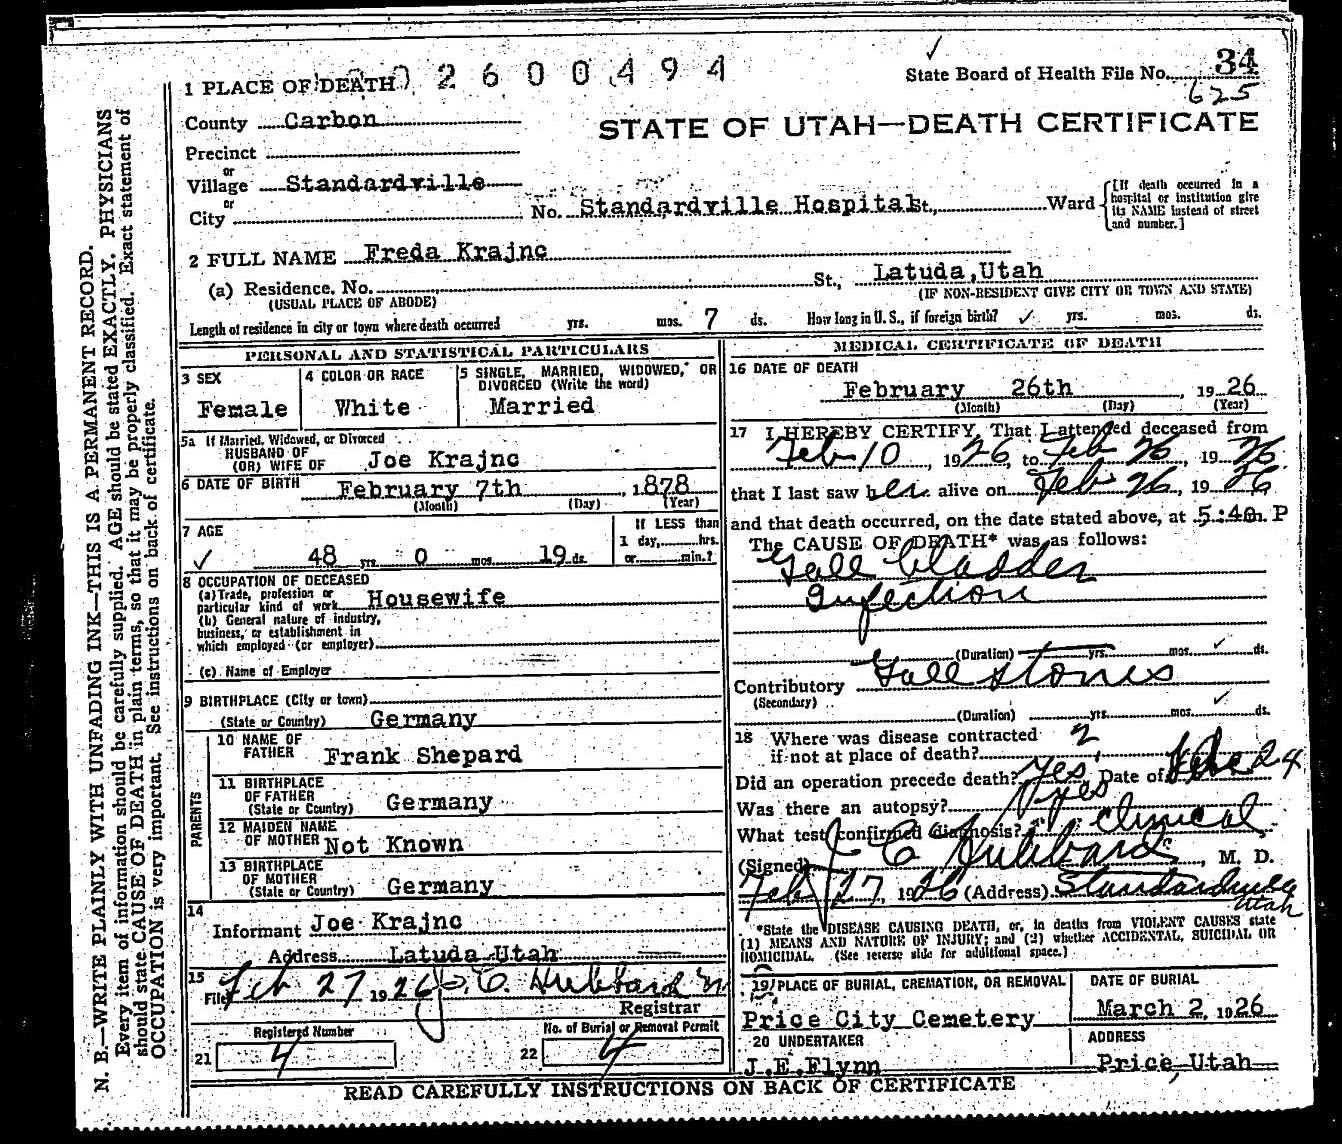 2600494
State Board of Health File No. 34
625
1 PLACE OF DEATH
County Carbon
STATE OF UTAH—DEATH CERTIFICATE
Precinct
or
Village Standardville
or
City
No. Standardville Hospital St., Ward
[If death occurred in a hospital or institution give its NAME instead of street and number.]
2 FULL NAME Freda Krajnc
(a) Residence. No. St., Latuda, Utah
(USUAL PLACE OF ABODE) (IF NON-RESIDENT GIVE CITY OR TOWN AND STATE)
Length of residence in city or town where death occurred yrs. mos. 7 ds. How long in U. S., if foreign birth? ✓ yrs. mos. ds.
PERSONAL AND STATISTICAL PARTICULARS
3 SEX
Female
4 COLOR OR RACE
White
5 SINGLE, MARRIED, WIDOWED, OR DIVORCED (Write the word)
Married
5a If Married, Widowed, or Divorced
HUSBAND OF
(OR) WIFE OF Joe Krajnc
6 DATE OF BIRTH February 7th, 1878
(Month) (Day) (Year)
7 AGE
✓ 48 yrs. 0 mos. 19 ds.
If LESS than
1 day, hrs.
or min.?
8 OCCUPATION OF DECEASED
(a) Trade, profession or
particular kind of work Housewife
(b) General nature of industry,
business, or establishment in
which employed (or employer)
(c) Name of Employer
9 BIRTHPLACE (City or town)
(State or Country) Germany
PARENTS
10 NAME OF
FATHER Frank Shepard
11 BIRTHPLACE
OF FATHER
(State or Country) Germany
12 MAIDEN NAME
OF MOTHER Not Known
13 BIRTHPLACE
OF MOTHER
(State or Country) Germany
14
Informant Joe Krajnc
Address Latuda Utah
15
Filed Feb 27 1926 J. C. Hubbard
Registrar
Registered Number
21 4
No. of Burial or Removal Permit
22 4
MEDICAL CERTIFICATE OF DEATH
16 DATE OF DEATH
February 26th, 1926
(Month) (Day) (Year)
17 I HEREBY CERTIFY, That I attended deceased from
Feb 10, 1926, to Feb 26, 1926
that I last saw her alive on Feb 26, 1926
and that death occurred, on the date stated above, at 5:40 m. P
The CAUSE OF DEATH* was as follows:
Gall bladder
Infection
(Duration) yrs. mos. ✓ ds.
Contributory Gall stones
(Secondary)
(Duration) yrs. mos. ✓ ds.
18 Where was disease contracted
if not at place of death? ?
Did an operation precede death? Yes Date of Feb 24
Was there an autopsy? yes
What test confirmed diagnosis? Clinical
(Signed) J C Hubbard, M. D.
Feb 27, 1926 (Address) Standardville
Utah
*State the DISEASE CAUSING DEATH, or, in deaths from VIOLENT CAUSES state
(1) MEANS AND NATURE OF INJURY; and (2) whether ACCIDENTAL, SUICIDAL OR
HOMICIDAL. (See reverse side for additional space.)
19 PLACE OF BURIAL, CREMATION, OR REMOVAL
Price City Cemetery
DATE OF BURIAL
March 2, 1926
20 UNDERTAKER
J.E.Flynn
ADDRESS
Price, Utah
READ CAREFULLY INSTRUCTIONS ON BACK OF CERTIFICATE
N. B.—WRITE PLAINLY WITH UNFADING INK—THIS IS A PERMANENT RECORD.
Every item of information should be carefully supplied. AGE should be stated EXACTLY. PHYSICIANS
should state CAUSE OF DEATH in plain terms, so that it may be properly classified. Exact statement of
OCCUPATION is very important. See instructions on back of certificate.